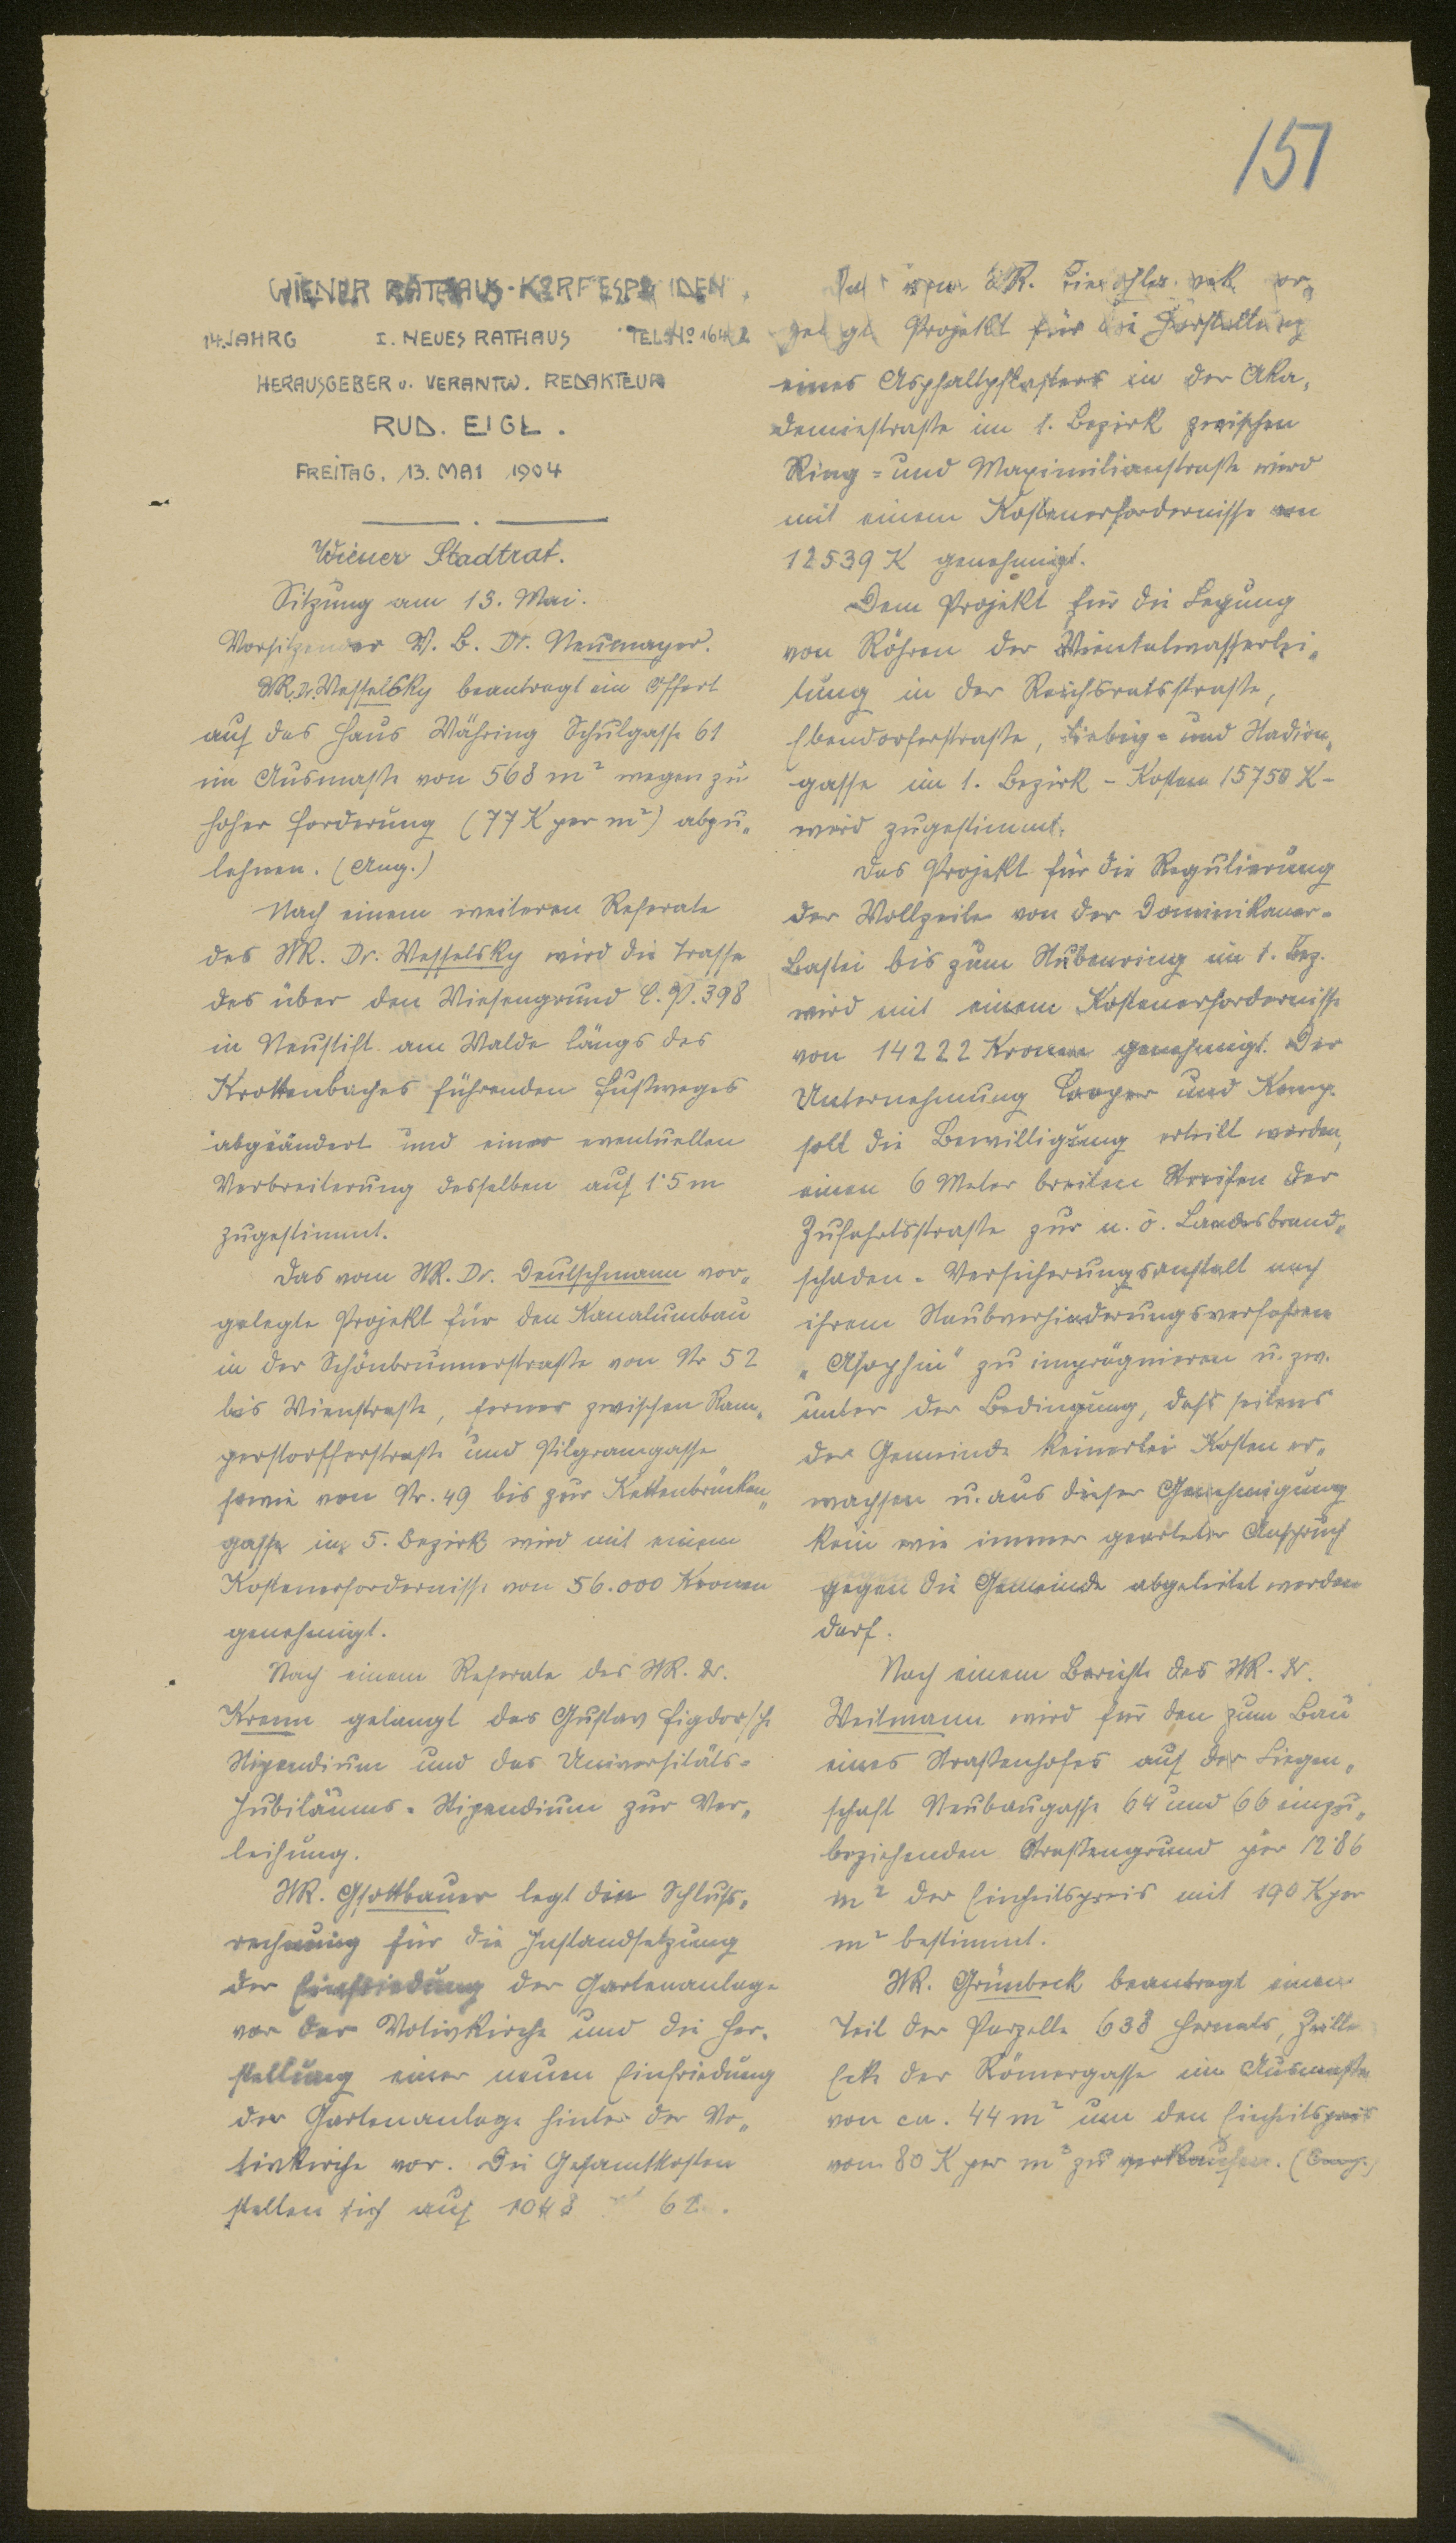 151
WIENER RATHAUS-KORRESPONDENZ.
14. JAHRG I. NEUES RATHAUS TEL. No 1642
HERAUSGEBER u. VERANTW. REDAKTEUR
RUD. EIGL.
FREITAG. 13. MAI 1904
Wiener Stadtrat.
Sitzung am 13. Mai.
Vorsitzender V. B. Dr. Neumayer.
StR. Dr. Wesselsky beantragt ein Offert
auf das Haus Währing Schulgasse 61
im Ausmaße von 568 m² wegen zu
hoher Forderung (77 K per m²) abzu„
lehnen. (Ang.)
Nach einem weiteren Referate
des StR. Dr. Wesselsky wird die Trasse
des über den Wiesengrund C. P. 398
in Neustift am Walde längs des
Krottenbaches führenden Fußweges
abgeändert und einer eventuellen
Verbreiterung desselben auf 1·5 m
zugestimmt.
Das vom StR. Dr. Deutschmann vor„
gelegte Projekt für den Kanalumbau
in der Schönbrunnerstraße von Nr 52
bis Wienstraße, ferner zwischen Ram„
perstorfferstraße und Pilgramgasse
sowie von Nr. 49 bis zur Kettenbrücken„
gasse im 5. Bezirk wird mit einem
Kostenerfordernisse von 56.000 Kronen
genehmigt.
Nach einem Referate des StR. Dr.
Krenn gelangt das Gustav Figdor'sche
Stipendium und das Universitäts-
Jubiläums-Stipendium zur Ver„
leihung.
StR. Gsottbauer legt die Schluß„
rechnung für die Instandsetzung
der Einfriedung der Gartenanlage
vor der Votivkirche und die Her„
stellung einer neuen Einfriedung
der Gartenanlage hinter der Vo„
tivkirche vor. Die Gesamtkosten
stellen sich auf 1048 62.
Das vom StR. vor„
gelegte Projekt für die Herstellung
eines Asphaltpflasters in der Aka„
demiestraße im 1. Bezirk zwischen
Ring- und Maximilianstraße wird
mit einem Kostenerfordernisse von
12539 K genehmigt.
Dem Projekt für die Legung
von Röhren der Wientalwasserlei„
tung in der Reichsratsstraße,
Ebendorferstraße, Liebig- und Stadion„
gasse im 1. Bezirk - Kosten 15750 K -
wird zugestimmt.
Das Projekt für die Regulierung
der Wollzeile von der Dominikaner-
Bastei bis zum Stubenring im 1. Bez.
wird mit einem Kostenerfordernisse
von 14222 Kronen genehmigt. Der
Unternehmung Cooper und Komp.
soll die Bewilligung erteilt werden,
einen 6 Meter breiten Streifen der
Zufahrtsstraße zur n. ö. Landesbrand„
schaden-Versicherungsanstalt nach
ihrem Staubverhinderungsverfahren
zu imprägnieren u. zw.
unter der Bedingung, daß seitens
der Gemeinde keinerlei Kosten er„
wachsen u. aus dieser Genehmigung
kein wie immer gearteter Anspruch
gegen die Gemeinde abgeleitet werden
darf.
Nach einem Berichte des StR. Dr.
Weitmann wird für den zum Bau
eines Straßenhofes auf der Liegen„
schaft Neubaugasse 64 und 66 einzu„
beziehenden Straßengrund per 12·86
m² der Einheitspreis mit 190 K per
m² bestimmt.
StR. Grünbeck beantragt einen
Teil der Parzelle 638 Hernals, Zeille
Ecke der Römergasse im Ausmaße
von ca. 44 m² um den Einheitspreis
von 80 K per m² zu verkaufen. (Ang.)